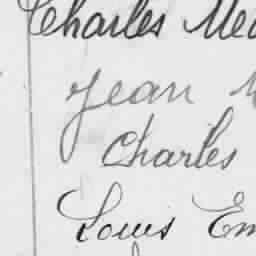 Charles
Jean
Charles
Louis Em